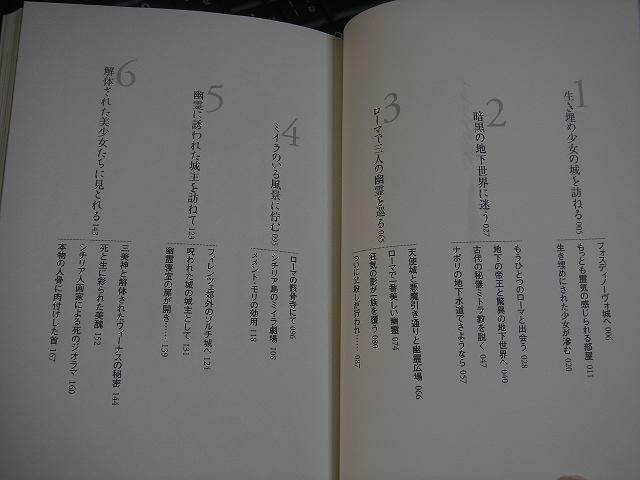 1
生き埋め少女の城を訪ねる 005
フォスディノーヴォ城へ 006
もっとも霊気の感じられる部屋 011
生き埋めにされた少女が滲む 020
2
暗黒の地下世界に迷う 027
もうひとつのローマと出会う 028
地下の帝王と驚異の地下世界へ 040
古代の秘儀ミトラ教を説く 047
ナポリの地下水道でさようなら 057
3
ローマで三人の幽霊を巡る 065
天使城と悪魔引き通りと幽霊広場 066
ローマで一番美しい幽霊 074
狂気の影が一族を覆う 080
ついに父殺しが行われ…… 087
4
ミイラのいる風景に佇む 095
ローマの骸骨寺にて 096
シチリア島のミイラ劇場 108
メメント・モリの効用 118
5
幽霊に誘われた城主を訪ねて 123
フィレンツェ郊外のソルチ城へ 124
呪われた城の城主として 131
幽霊寝室の扉が開き…… 139
6
解体された美少女たちに見とれる 143
三美神と解体されたヴィーナスの秘密 144
死と生に彩られた美醜 152
シチリア人画家による死のジオラマ 160
本物の人骨に肉付けした首 167